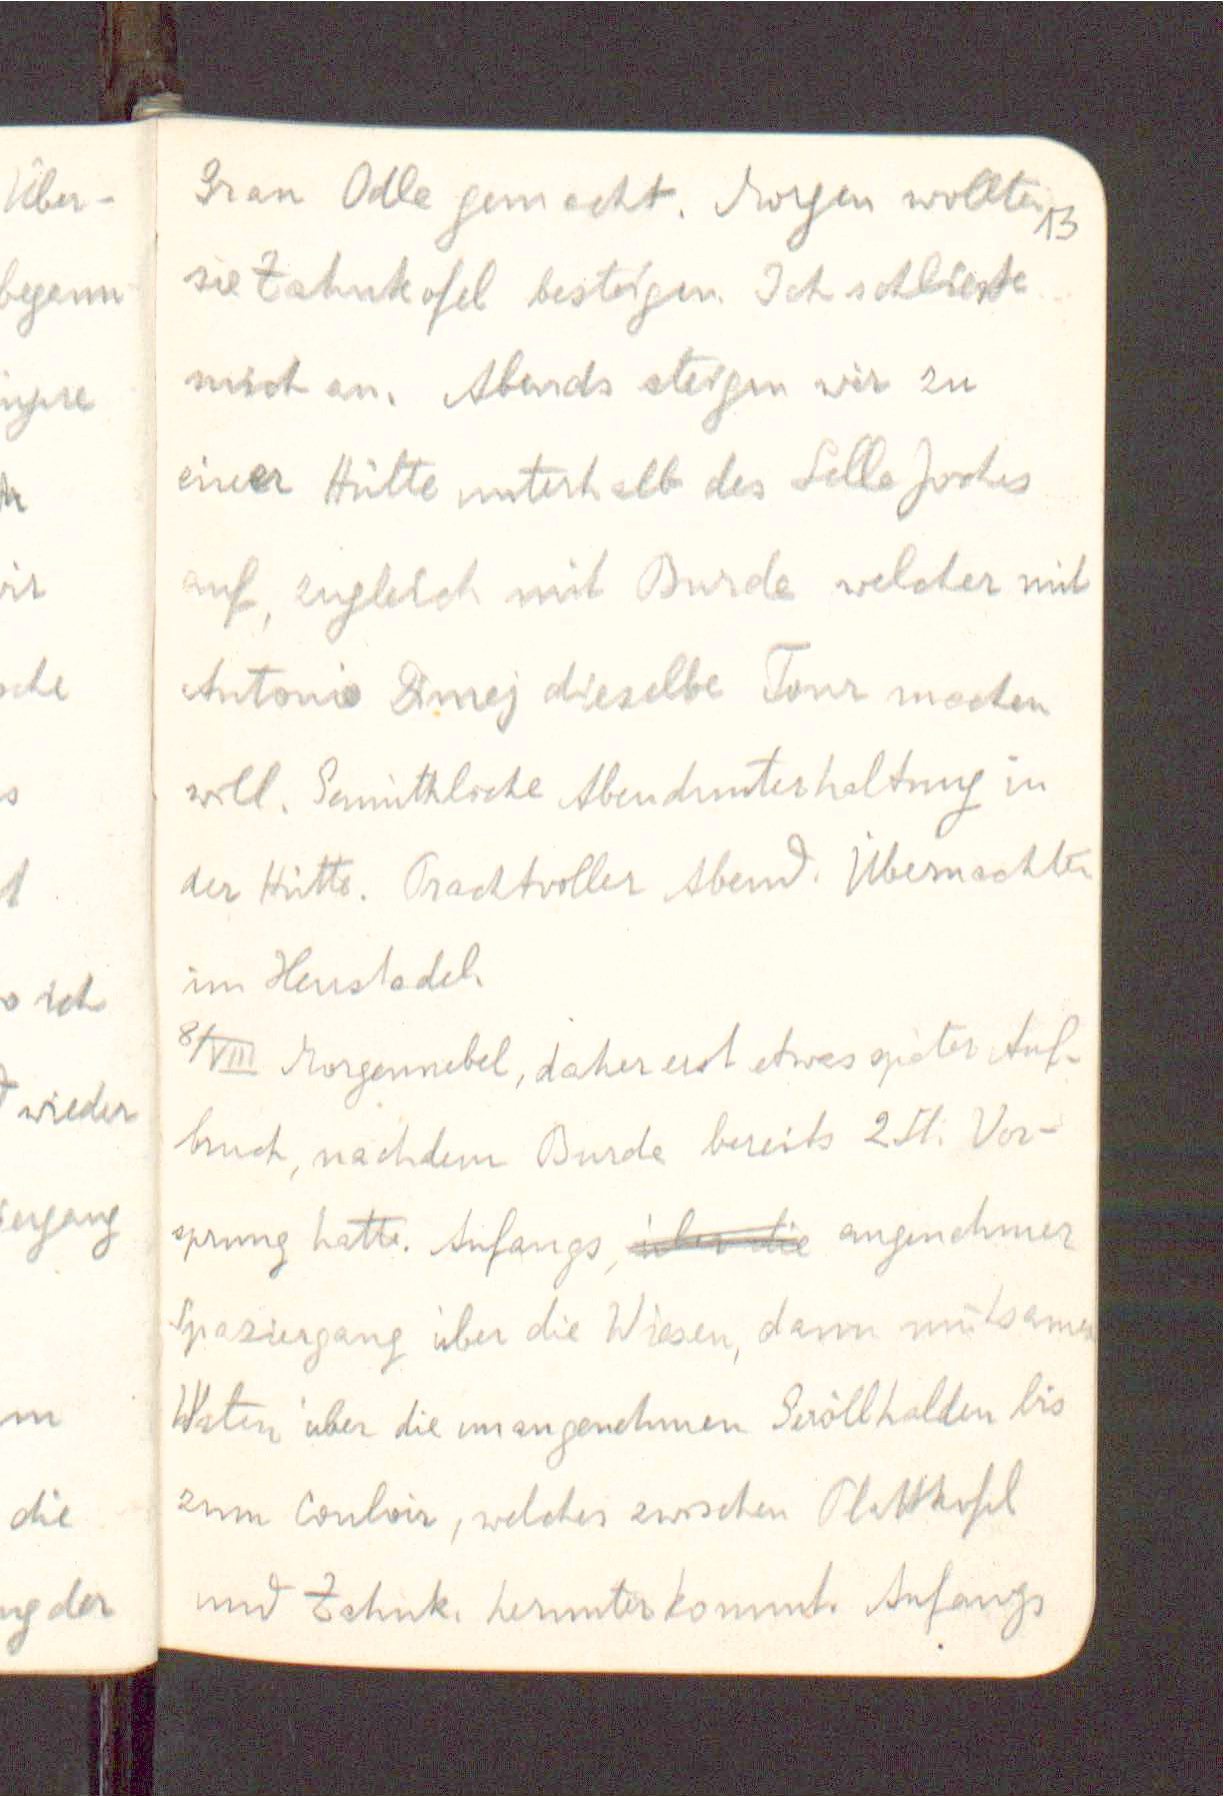 Über-
begann
wir
die
ich
wieder
ziergang
die
der
13
Gran Odla gemacht. Morgen wollten
sie Zahnkofel besteigen. Ich schliesse
mich an. Abends steigen wir zu
einer Hütte unterhalb des Sella Joches
auf, zugleich mit Burde welcher mit
Antonio Dimej dieselbe Tour machen
will. Gemüthliche Abendunterhaltung in
der Hütte. Prachtvoller Abend. Übernachten
im Heustadel.
8/VIII Morgennebel, daher erst etwas später Auf-
bruch, nachdem Burde bereits 2 St. Vor-
sprung hatte. Anfangs, über die angenehmer
Spaziergang über die Wiesen, dann mühsames
Waten über die unangenehmen Geröllhalden bis
zum Couloir, welches zwischen Plattkofel
und Zahnk. herunterkommt. Anfangs